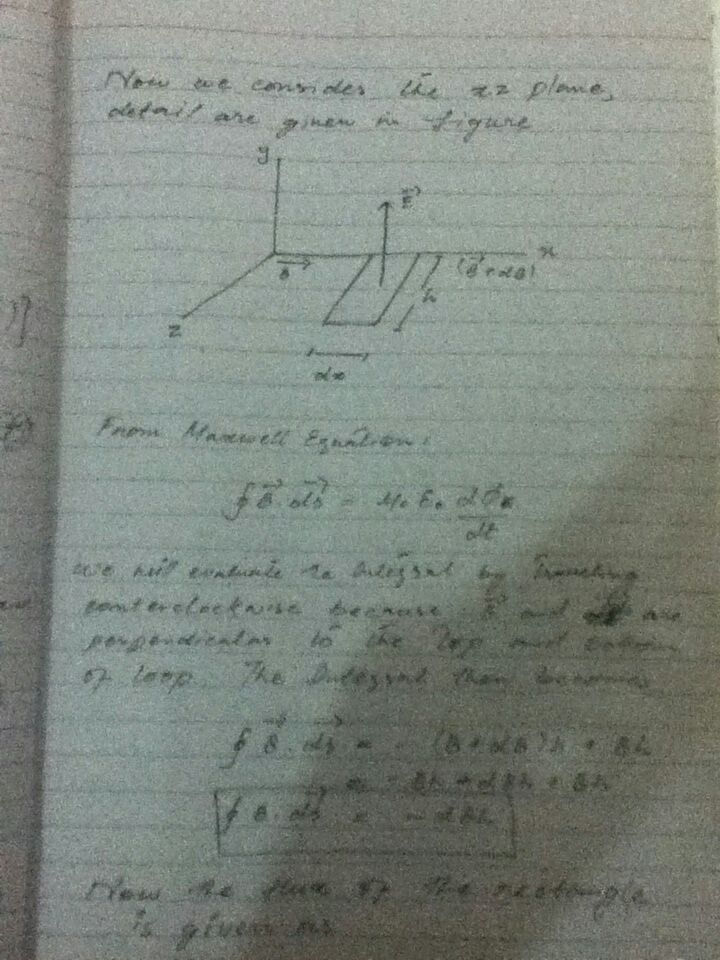 Now we consider the xz plane,
detail are given in figure
y
E⃗
x
B⃗
(B⃗+dB)
h
z
dx
From Maxwell Equation:
∮B⃗.ds⃗ = μ₀ε₀ dΦE/dt
we will evaluate the Integral by Traveling
conterclockwise because B⃗ and are
perpendicular to the Top and bottom
of loop. The Integral then becomes
∮ B⃗.ds⃗ = -(B+dB)h + Bh
= -Bh + dBh + Bh
∮ B.ds⃗ = -dBh
Now the flux of the rectangle
is given as